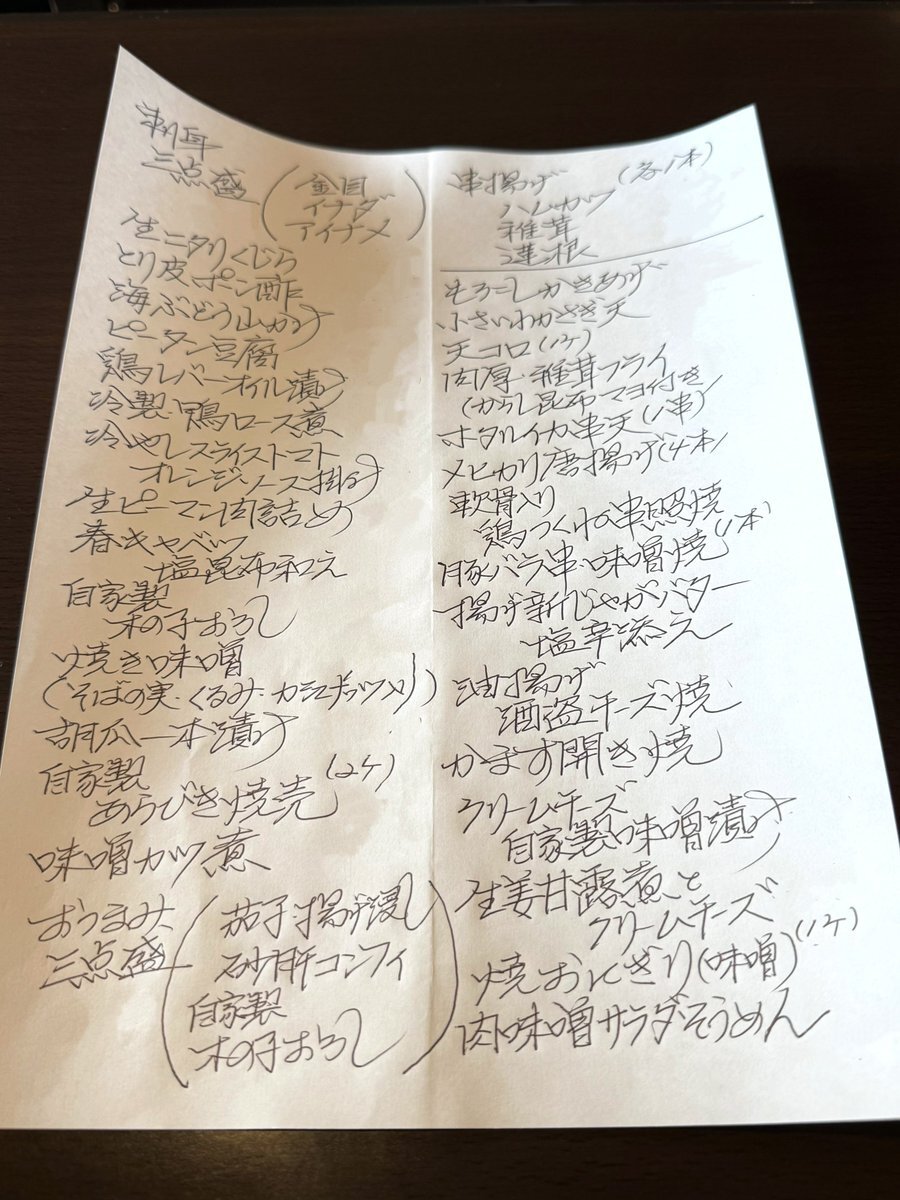 刺身
三点盛
(金目
イナダ
アイナメ)
生ニタリくじら
とり皮ポン酢
海ぶどう山かけ
ピータン豆腐
鶏レバーオイル漬け
冷製・鴨ロース煮
冷やしスライストマト
オレンジソース掛け
生ピーマン肉詰め
春キャベツ
塩昆布和え
自家製
木の子おろし
焼き味噌
(そばの実・くるみ・カシューナッツ入り)
胡瓜一本漬け
自家製
あらびき焼売(2ケ)
味噌カツ煮
おつまみ
三点盛
(茄子揚げ浸し
砂肝コンフィ
自家製
木の子おろし)
串揚げ(各1本)
ハムカツ
椎茸
蓮根
もろこしかきあげ
小さいわかさぎ天
天コロ(1ケ)
肉厚・椎茸フライ
(からし昆布マヨ付き)
ホタルイカ串天(1串)
メヒカリ唐揚げ(4本)
軟骨入り
鶏つくねの串照焼
豚バラ串・味噌焼(1本)
揚げ新じゃがバター
塩辛と添え
油揚げ
酒盗チーズ焼
かます開き焼
クリームチーズ
自家製味噌漬け
生姜甘露煮と
クリームチーズ
焼おにぎり(味噌)(1ケ)
肉味噌サラダそうめん